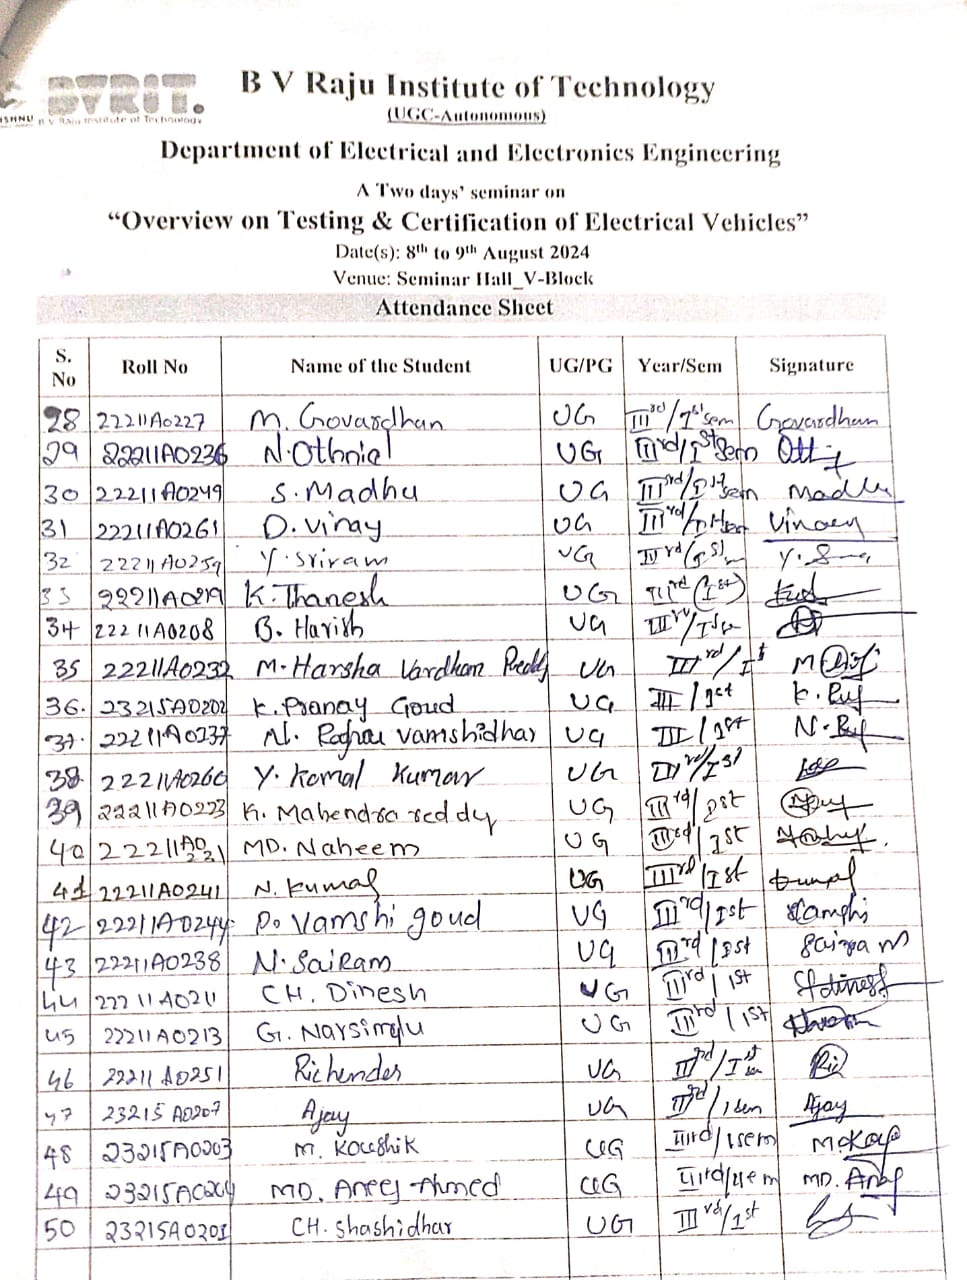 BVRIT.
B V Raju Institute of Technology
B V Raju Institute of Technology
(UGC-Autonomous)
Department of Electrical and Electronics Engineering
A Two days' seminar on
"Overview on Testing & Certification of Electrical Vehicles"
Date(s): 8th to 9th August 2024
Venue: Seminar Hall_V-Block
Attendance Sheet
S. No Roll No Name of the Student UG/PG Year/Sem Signature
28 22211A0227 M. Govardhan UG IIIrd/1st sem Govardhan
29 22211A0236 N.Othniel UG IIIrd/Ist Sem
30 22211A0249 S.Madhu UG IIIrd/Ist sem Madhu
31 22211A0261 D.Vinay UG IIIrd/ Vinay
32 22211A0259 Y.Sriram UG
33 22211A0219 K.Thanesh UG IIIrd (Ist)
34 22211A0208 B. Harish UG
35 22211A0232 M.Harsha Vardhan Reddy UG IIIrd/Ist
36. 23215A0202 K.Pranay Goud UG III/1st
37. 22211A0237 N. Raghav vamshidhar UG III/1st
38. 22211A0260 Y. Komal Kumar UG IIIrd/Ist
39 22211A0223 K. Mahendra reddy UG IIIrd/1st
40 22211A0221 MD. Naheem UG IIIrd/1st
41 22211A0241 N. Kumar UG IIIrd/Ist
42 22211A0244 P. Vamshi goud UG IIIrd/Ist Vamshi
43 22211A0238 N.SaiRam UG IIIrd/Ist Sairam
44 22211A0211 CH. Dinesh UG IIIrd/1st
45 22211A0213 G. Narsimlu UG IIIrd/1st
46 22211A0251 Richender UG IIIrd/Ist
47 23215A0207 Ajay UG IIIrd/1sem Ajay
48 23215A0203 M. Koushik UG IIIrd/1sem
49 23215A0204 MD. Areej Ahmed UG IIIrd/1sem MD.
50 23215A0201 CH. Shashidhar UG IIIrd/1st